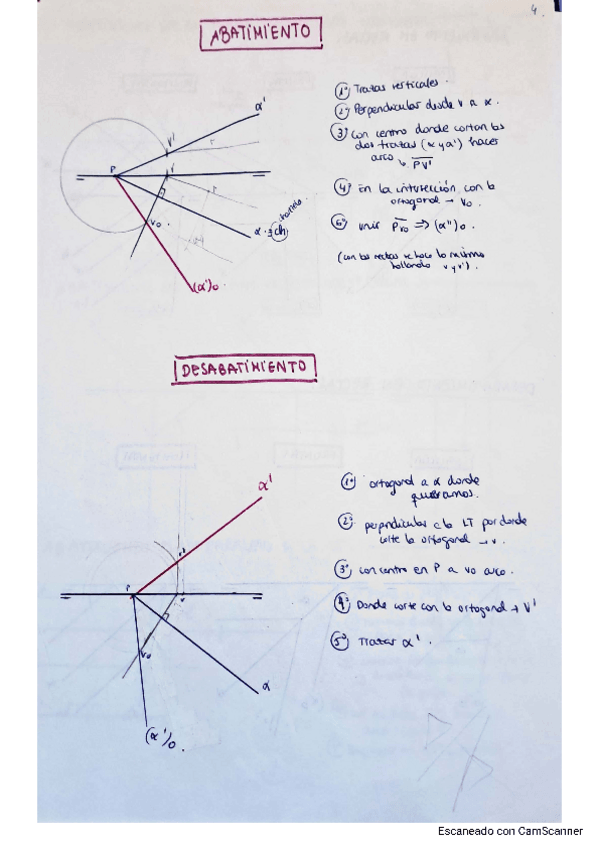 4.
ABATIMIENTO
1º Trazas verticales.
2º Perpendicular desde V a α.
3º Con centro donde cortan las
dos trazas (α y α') hacer
arco PV'
4º En la intersección con la
ortogonal → Vo.
6º unir PVo ⇒ (α'')o.
(con las rectas se hace lo mismo
hallando v y v').
α'
V'
r
P
V
r
Vo
α
ch
(α')o.
DESABATIMIENTO
1º ortogonal a α donde
queramos.
2º perpendicular a la LT por donde
corte la ortogonal → v.
3º con centro en P a vo arco.
4º Donde corte con la ortogonal → V'
5º Trazar α'.
α'
v'
P
v
Vo
α
(α')o.
Escaneado con CamScanner